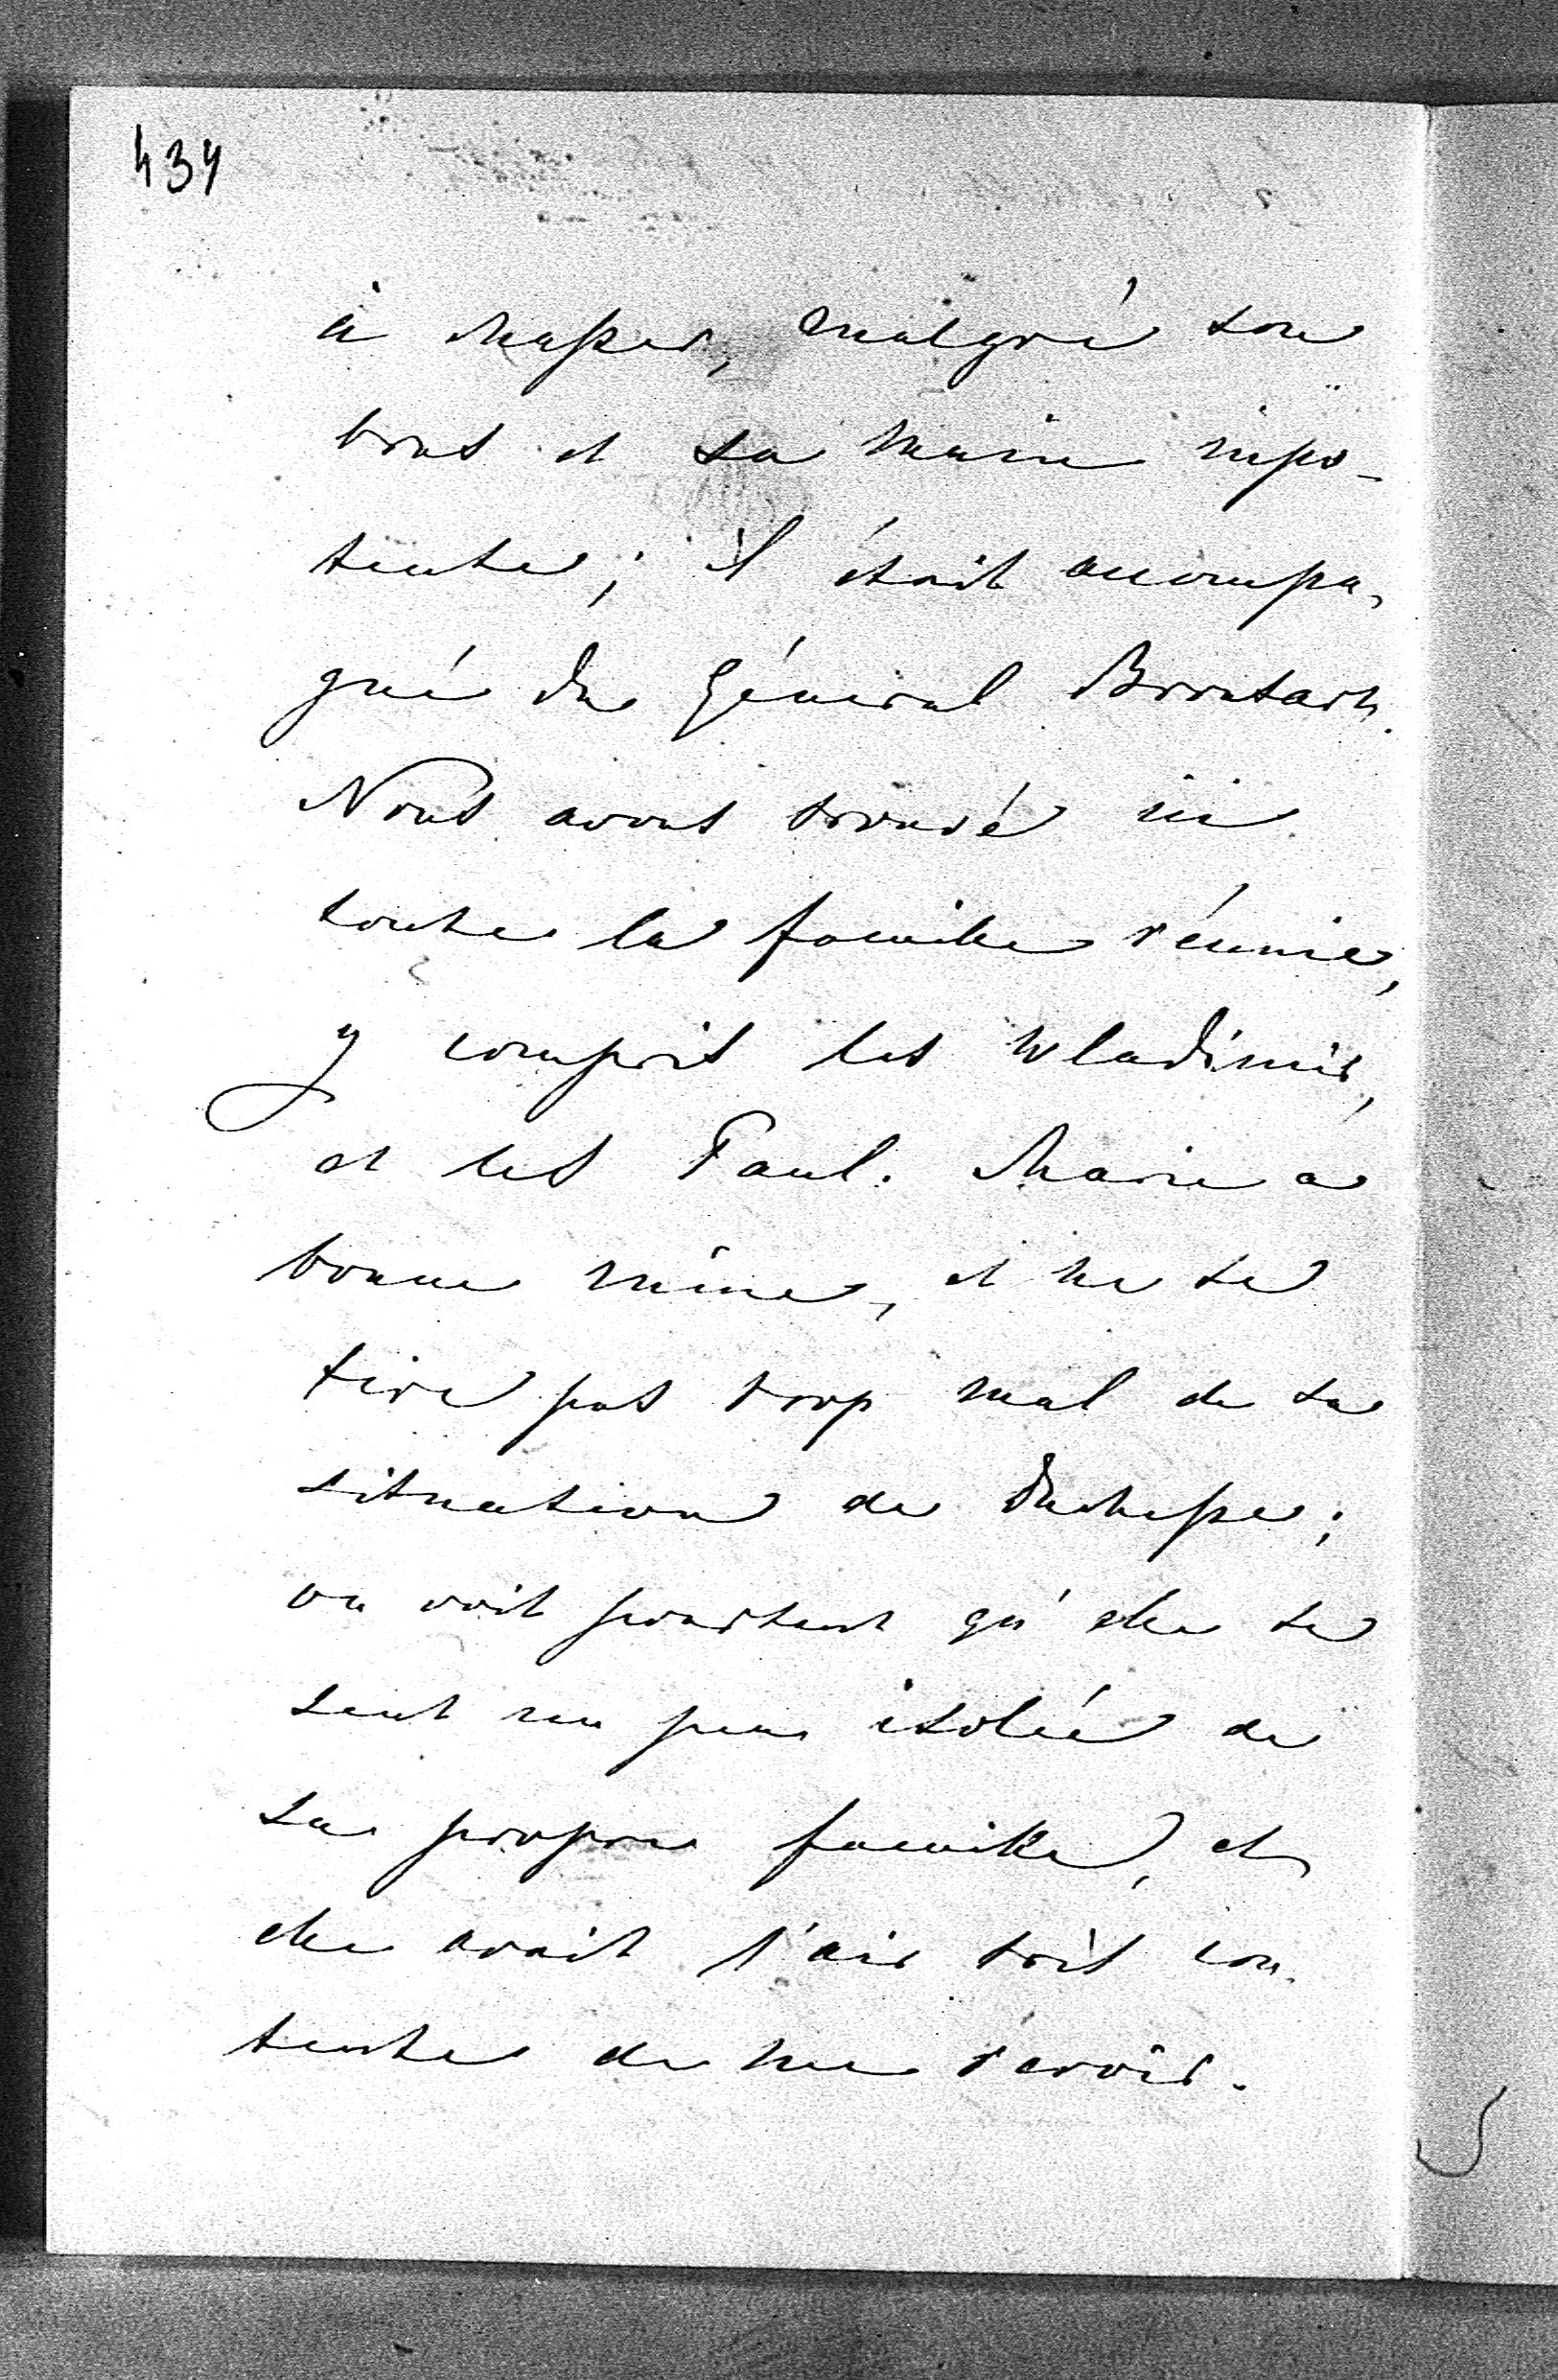 434
à chasser, malgré son
bras et sa main impo-
tente; il était accompa-
gné du Général Bronsart.
Nous avons trouvé ici
toute la famille réunie,
y compris les Wladimir,
et les Paul. Marie a
bonne mine, et ne se
tire pas trop mal de sa
situation de Duchesse;
on voit pourtant qu'elle se
sent un peu isolée de
sa propre famille, et
elle avait l'air très con-
tente de me revoir.